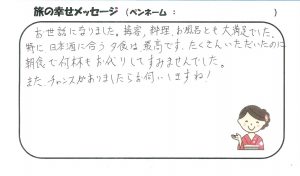 旅の幸せメッセージ (ペンネーム : )
お世話になりました。接客、料理、お風呂とも大満足でした。
特に日本酒に合う夕食は最高です。たくさんいただいたのに
朝食で何杯もお代りしてすみませんでした。
またチャンスがありましたらお伺いしますね!